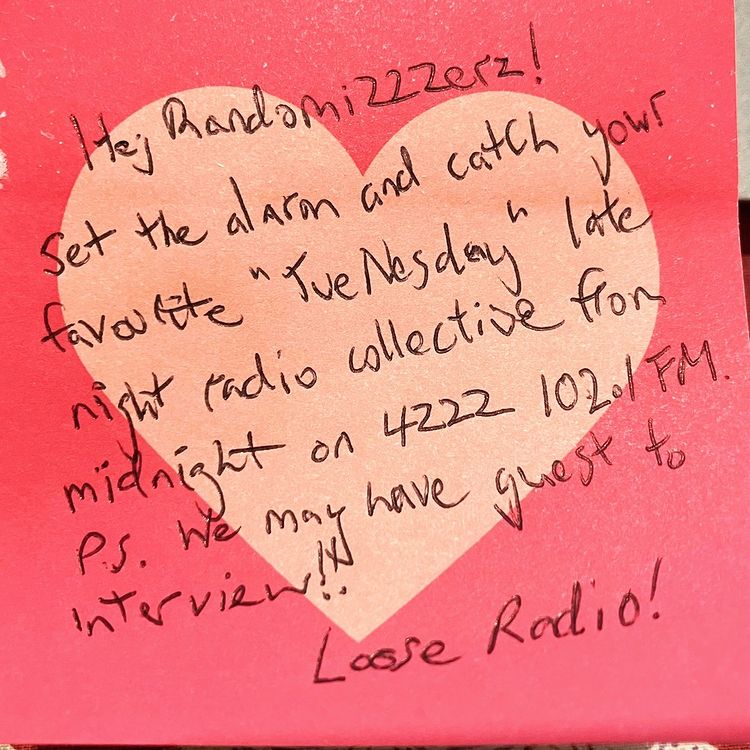 Hej Randomizzzerz!
Set the alarm and catch your
favourite "TueNesday" late
night radio collective from
midnight on 4ZZZ 102.1 FM.
P.S. We may have guest to
interview!!
Loose Radio!